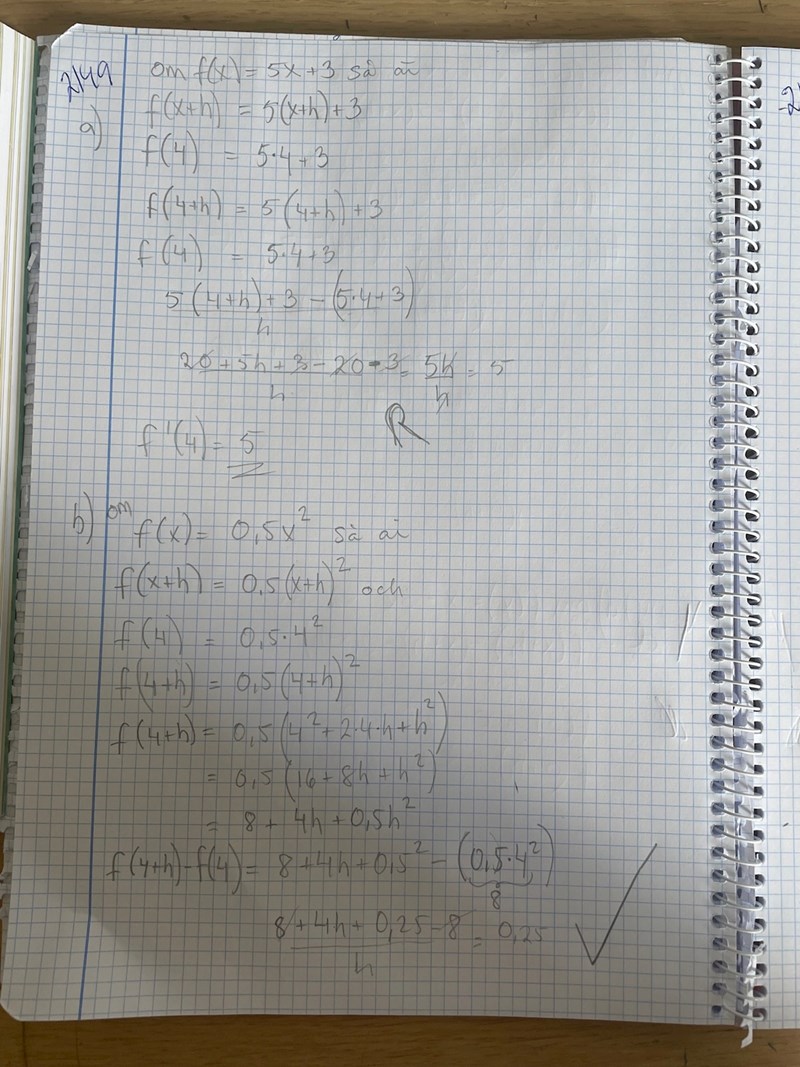 2149
om f(x) = 5x+3 så är
a) f(x+h) = 5(x+h)+3
f(4) = 5·4+3
f(4+h) = 5(4+h)+3
f(4) = 5·4+3
5(4+h)+3-(5·4+3)
h
20+5h+3-20-3 = 5h = 5
h h
R
f'(4) = 5
b) om f(x) = 0,5x² så är
f(x+h) = 0,5(x+h)² och
f(4) = 0,5·4²
f(4+h) = 0,5(4+h)²
f(4+h) = 0,5(4²+2·4·h+h²)
= 0,5(16+8h+h²)
= 8+4h+0,5h²
f(4+h)-f(4) = 8+4h+0,5²-(0,5·4²)
8
8+4h+0,25-8 = 0,25
h